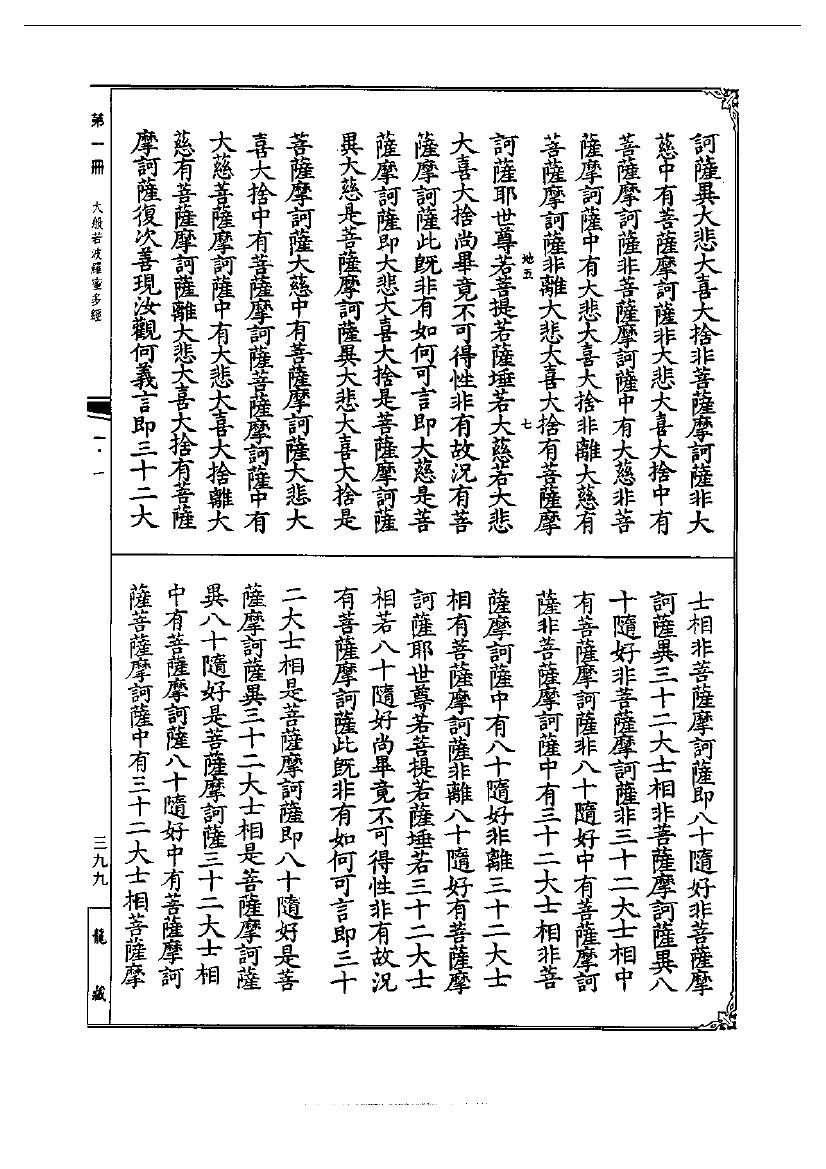 訶薩異大悲大喜大捨非菩薩摩訶薩非大
慈中有菩薩摩訶薩非大悲大喜大捨中有
菩薩摩訶薩非菩薩摩訶薩中有大慈非菩
薩摩訶薩中有大悲大喜大捨非離大慈有
菩薩摩訶薩非離大悲大喜大捨有菩薩摩
地五
七
訶薩耶世尊若菩提若薩埵若大慈若大悲
大喜大捨尚畢竟不可得性非有故況有菩
薩摩訶薩此既非有如何可言即大慈是菩
薩摩訶薩即大悲大喜大捨是菩薩摩訶薩
異大慈是菩薩摩訶薩異大悲大喜大捨是
菩薩摩訶薩大慈中有菩薩摩訶薩大悲大
喜大捨中有菩薩摩訶薩菩薩摩訶薩中有
大慈菩薩摩訶薩中有大悲大喜大捨離大
慈有菩薩摩訶薩離大悲大喜大捨有菩薩
摩訶薩復次善現汝觀何義言即三十二大
士相非菩薩摩訶薩即八十隨好非菩薩摩
訶薩異三十二大士相非菩薩摩訶薩異八
十隨好非菩薩摩訶薩非三十二大士相中
有菩薩摩訶薩非八十隨好中有菩薩摩訶
薩非菩薩摩訶薩中有三十二大士相非菩
薩摩訶薩中有八十隨好非離三十二大士
相有菩薩摩訶薩非離八十隨好有菩薩摩
訶薩耶世尊若菩提若薩埵若三十二大士
相若八十隨好尚畢竟不可得性非有故況
有菩薩摩訶薩此既非有如何可言即三十
二大士相是菩薩摩訶薩即八十隨好是菩
薩摩訶薩異三十二大士相是菩薩摩訶薩
異八十隨好是菩薩摩訶薩三十二大士相
中有菩薩摩訶薩八十隨好中有菩薩摩訶
薩菩薩摩訶薩中有三十二大士相菩薩摩
第一冊 大般若波羅蜜多經
一·一
三九九
龍藏